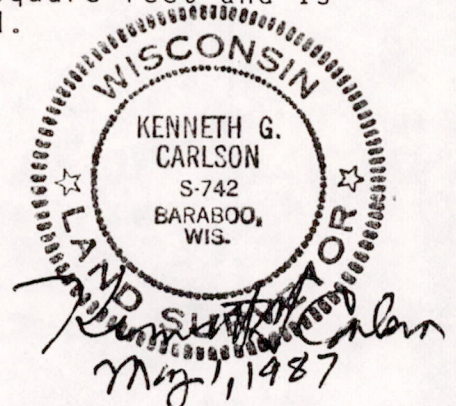 square feet and is
WISCONSIN
KENNETH G.
CARLSON
S-742
BARABOO,
WIS.
LAND SURVEYOR
Kenneth G. Carlson
May 1, 1987